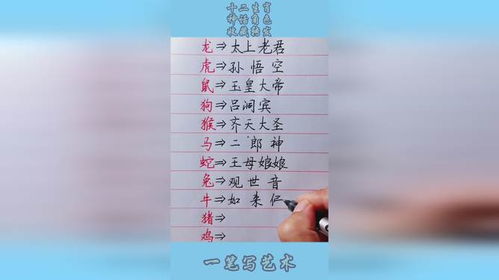 十二生肖
神话角色
收藏转发
龙⇒太上老君
虎⇒孙悟空
鼠⇒玉皇大帝
狗⇒吕洞宾
猴⇒齐天大圣
马⇒二郎神
蛇⇒王母娘娘
兔⇒观世音
牛⇒如来
猪⇒
鸡⇒
一笔写艺术